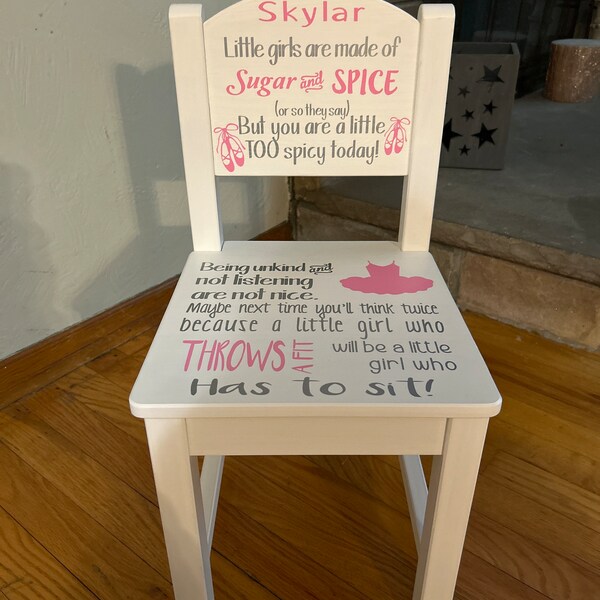 Skylar
Little girls are made of
Sugar and SPICE
(or so they say)
But you are a little
TOO spicy today!
Being unkind and
not listening
are not nice.
Maybe next time you'll think twice
because a little girl who
THROWS A FIT will be a little
girl who
Has to sit!